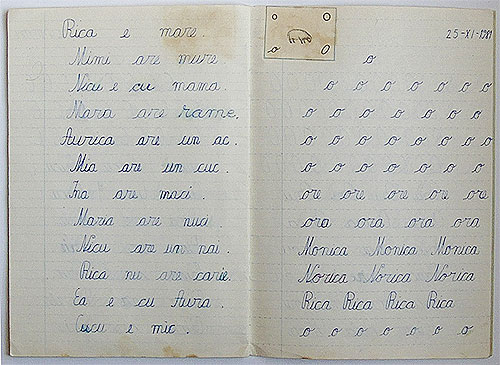 Rica e mare.
Mimi are mure.
Nicu e cu mama.
Mara are rame.
Aurica are un ac.
Mia are un cuc.
Ina are maci.
Maria are nuci.
Nicu are un nai.
Rica nu are carie.
Ea e cu Aura.
Cucu e mic.
o O
o O
25-XI-1981
o
o o o o o o o
o o o o o o o o
o o o o o o o o
o o o o o o o
ore ore ore ore ore
ora ora ora ora
Monica Monica Monica
Norica Norica Norica
Rica Rica Rica Rica
o o o o o o o